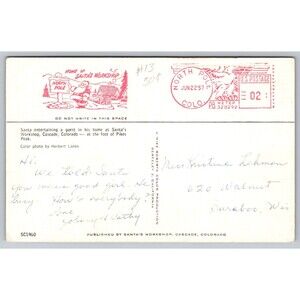 HOME OF SANTA'S WORKSHOP
NORTH POLE
#13
NORTH POLE
JUN 22 '57
COLO.
02
METER
DO NOT WRITE IN THIS SPACE
Santa entertaining a guest in his home at Santa's
Workshop, Cascade, Colorado — at the foot of Pikes
Peak.
Color photo by Herbert Lanks
Hi:
We told Santa
you were a good girl. He's
busy. How's everybody?
Love
Johnny & Cathy
Miss Kristine Lohman
620 Walnut
Baraboo, Wis
SC1960
PUBLISHED BY SANTA'S WORKSHOP, CASCADE, COLORADO